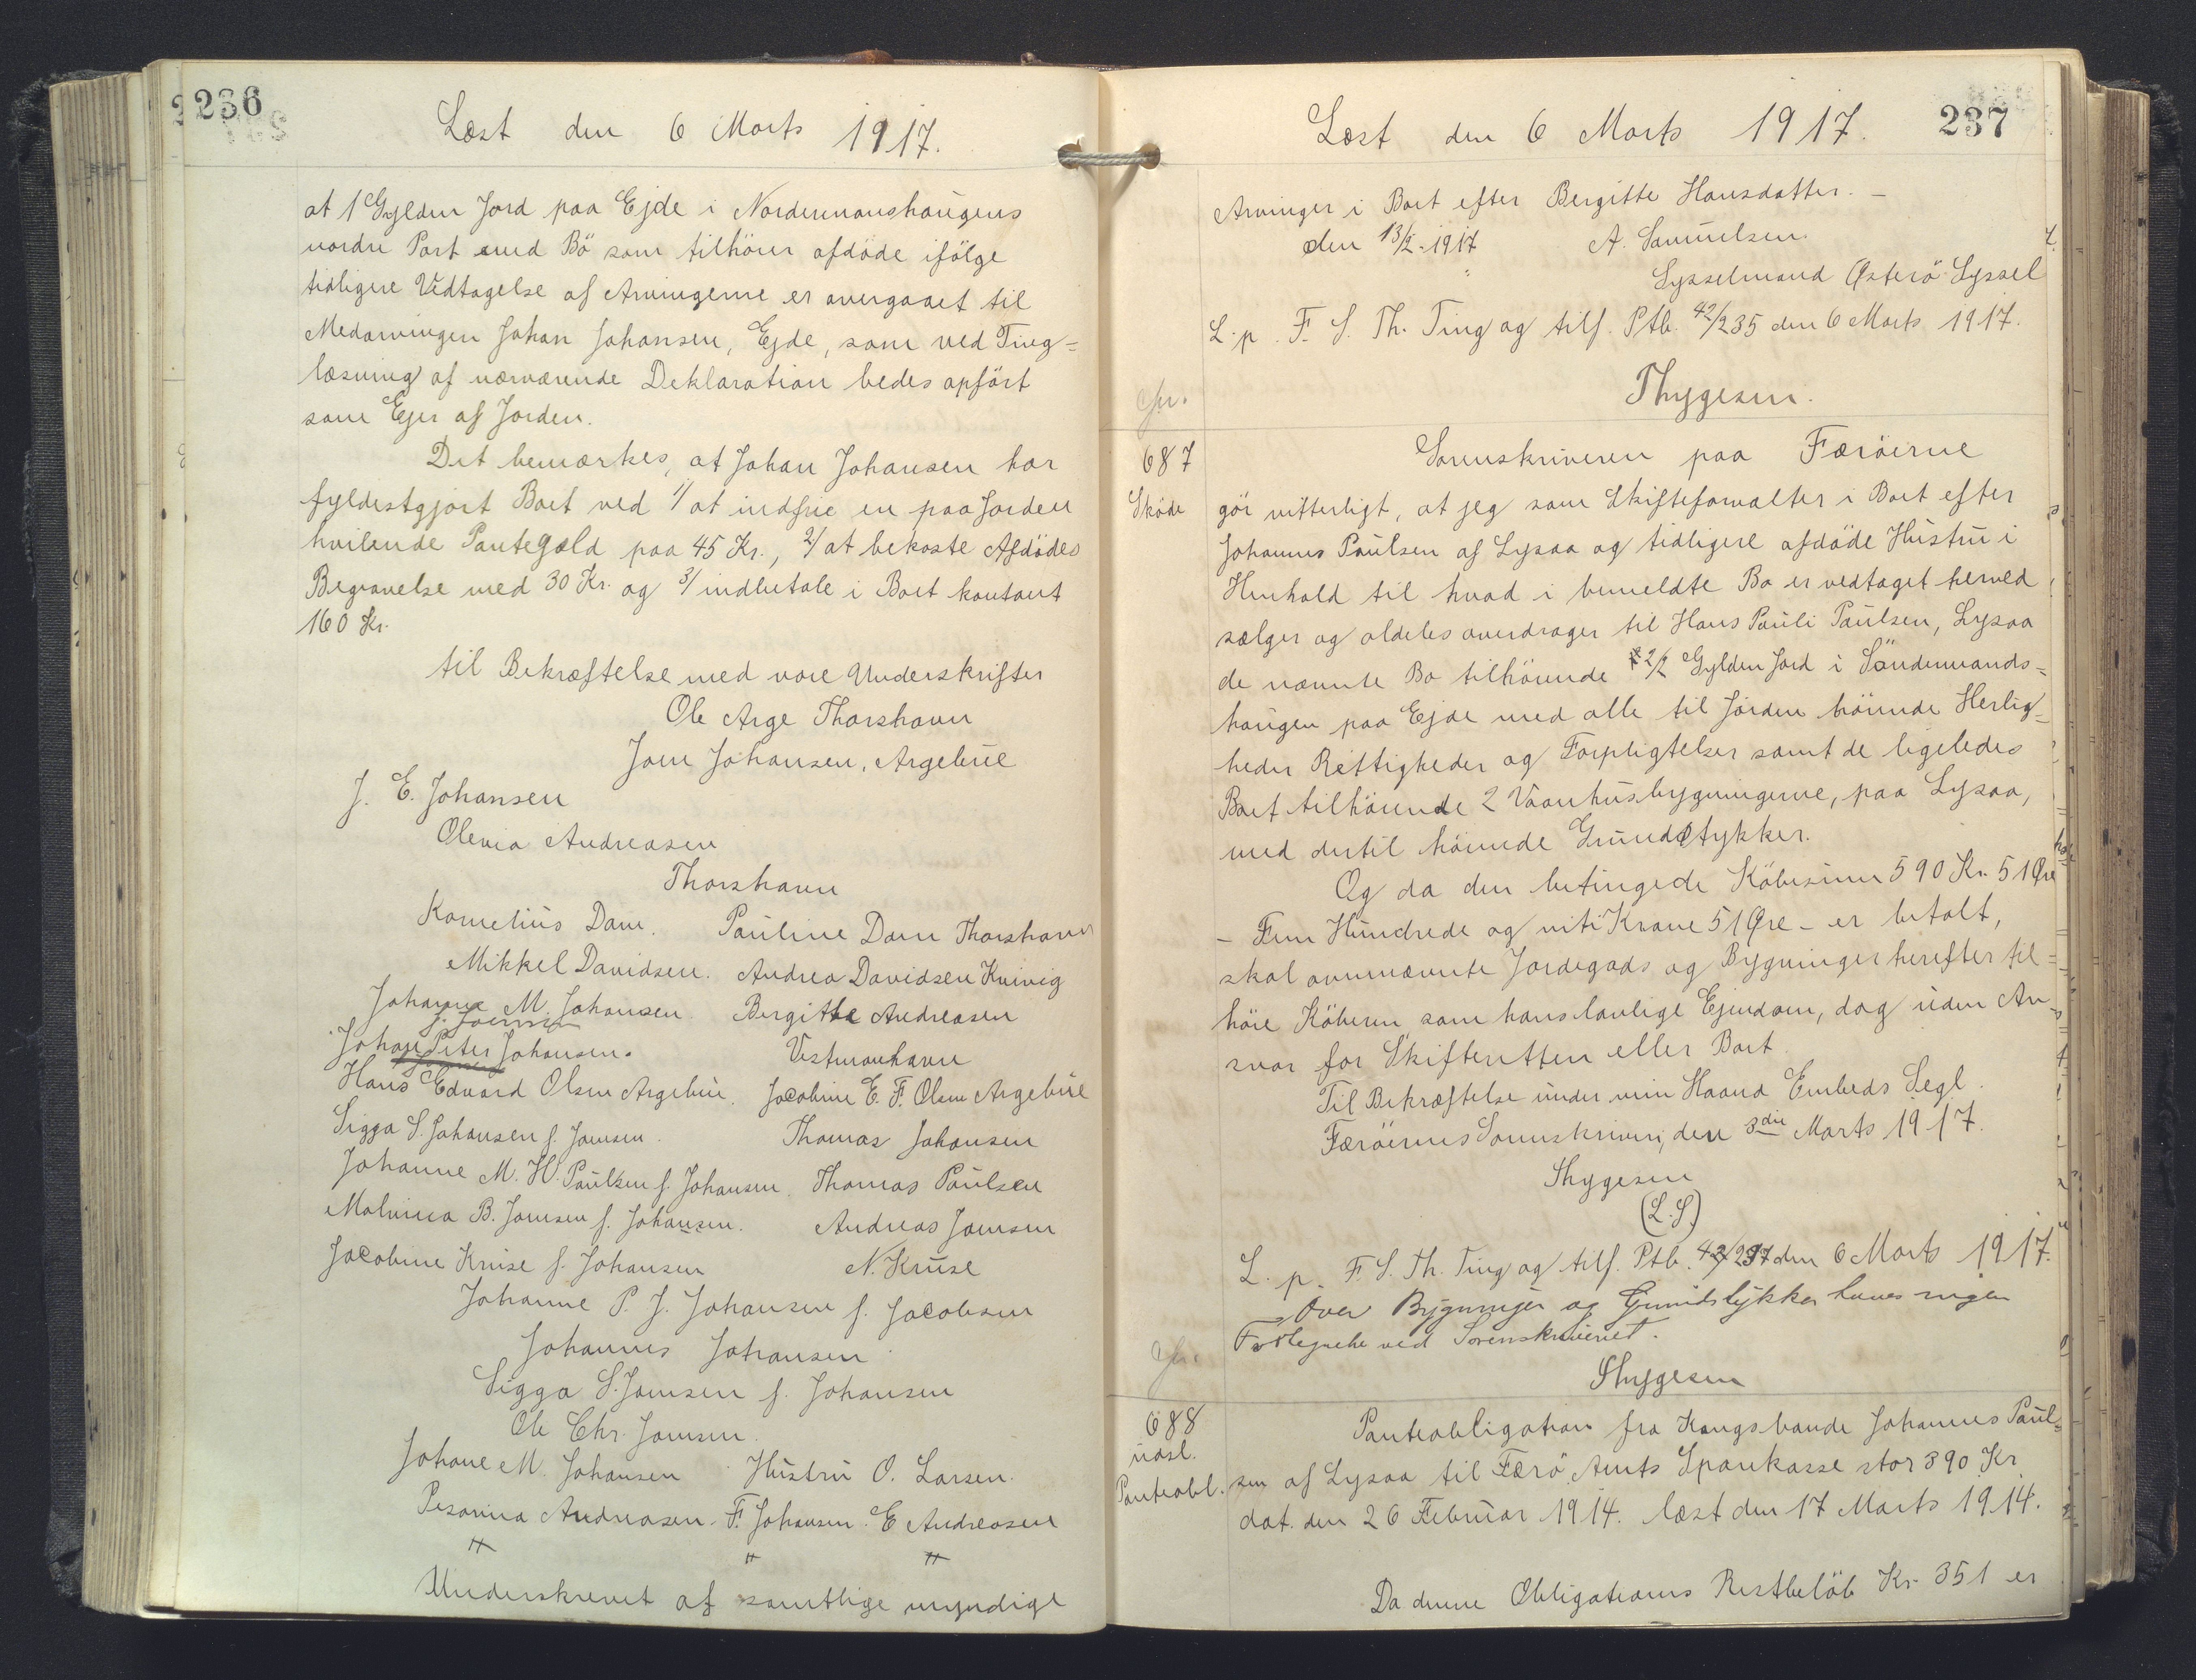 236
Læst den 6 Marts 1917.
at 1 Gylden Jord paa Ejde i Nordermanshaugens
nordre Part med Bö som tilhörer afdöde ifölge
tidligere Vedtagelse af Arvingerne er overgaaet til
Medarvingen Johan Johansen, Ejde, som ved Ting=
læsning af nærværende Deklaration bedes opfört
som Ejer af Jorden.
Det bemærkes, at Johan Johansen har
fyldestgjort Boet ved 1/ at indfrie en paa Jorden
hvilende Pantegæld paa 45 Kr., 2/ at bekoste Afdödes
Begravelse med 30 Kr. og 3/ indbetale i Boet kontant
160 Kr.
til Bekræftelse med vore Underskrifter
Ole Arge Thorshavn
Joen Johansen, Argebue
J. E. Johansen
Olevia Andreasen
Thorshavn
Kornelius Dam. Pauline Dam Thorshavn
Mikkel Davidsen. Andrea Davidsen Kvivig
Johanna M. Johansen Bergitte Andreasen
f. Joensen
Johan Peter Johansen. Vestmanhavn
Hans Edvard Olsen Argebue. Jacobine E. F. Olsen Argebue
Sigga S. Johansen f. Joensen. Thomas Johansen
Johanne M. H. Paulsen f. Johansen. Thomas Paulsen
Malvina B. Joensen f. Johansen. Andreas Joensen
Jacobine Kruse f. Johansen N. Kruse
Johanne P. J. Johansen f. Jacobsen
Johannes Johansen
Sigga S. Joensen f. Johansen
Ole Chr. Joensen
Johane M. Johansen Hustru O. Larsen.
Andreasen. F. Johansen. E Andreasen
" " "
Underskrevet af samtlige myndige
237
Læst den 6 Marts 1917.
Arvinger i Boet efter Bergitte Hansdatter. –
den 13/2-1917 A. Samuelsen.
Sysselmand Østerö Syssel
L. p. F. S. Th. Ting og tilf. Ptb. 42/235 den 6 Marts 1917.
Thygesen.
687
Sköde
Sorenskriveren paa Færöerne
gör vitterligt, at jeg som Skifteforvalter i Boet efter
Johannes Paulsen af Lysaa og tidligere afdöde Hustru i
Henhold til hvad i bemeldte Bo er vedtaget herved
sælger og aldeles overdrager til Hans Pauli Paulsen, Lysaa
de nævnte Bo tilhörende 2/2 Gylden Jord i Söndermands=
haugen paa Ejde med alle til Jorden hörende Herlig=
heder Rettigheder og Forpligtelser samt de ligeledes
Boet tilhörende 2 Vaanhusbygningerne, paa Lysaa,
med dertil hörende Grundstykker.
Og da den betingede Köbesum 590 Kr. 51 Øre
– Fem Hundrede og niti Krone 51 Øre – er betalt,
skal ovennævnte Jordegods og Bygninger herefter til=
höre Köberen som hans lovlige Ejendom, dog uden An=
svar for Skifteretten eller Boet.
Til Bekræftelse under min Haand Embeds Segl.
Færöernes Sorenskriveri, den 3die Marts 1917.
Thygesen
(L.S)
L. p. F. S. Th. Ting og tilf. Ptb. 42/237 den 6 Marts 1917.
Over Bygninger og Grundstykker haves ingen
ved Sorenskriveriet.
Thygesen
688
udsl.
Panteobl.
Panteobligation fra Kongsbonde Johannes Paul=
sen af Lysaa til Færö Amts Sparekasse stor 390 Kr
dat. den 26 Februar 1914. læst den 17 Marts 1914.
Da denne Obligations Restbelöb Kr. 351 er